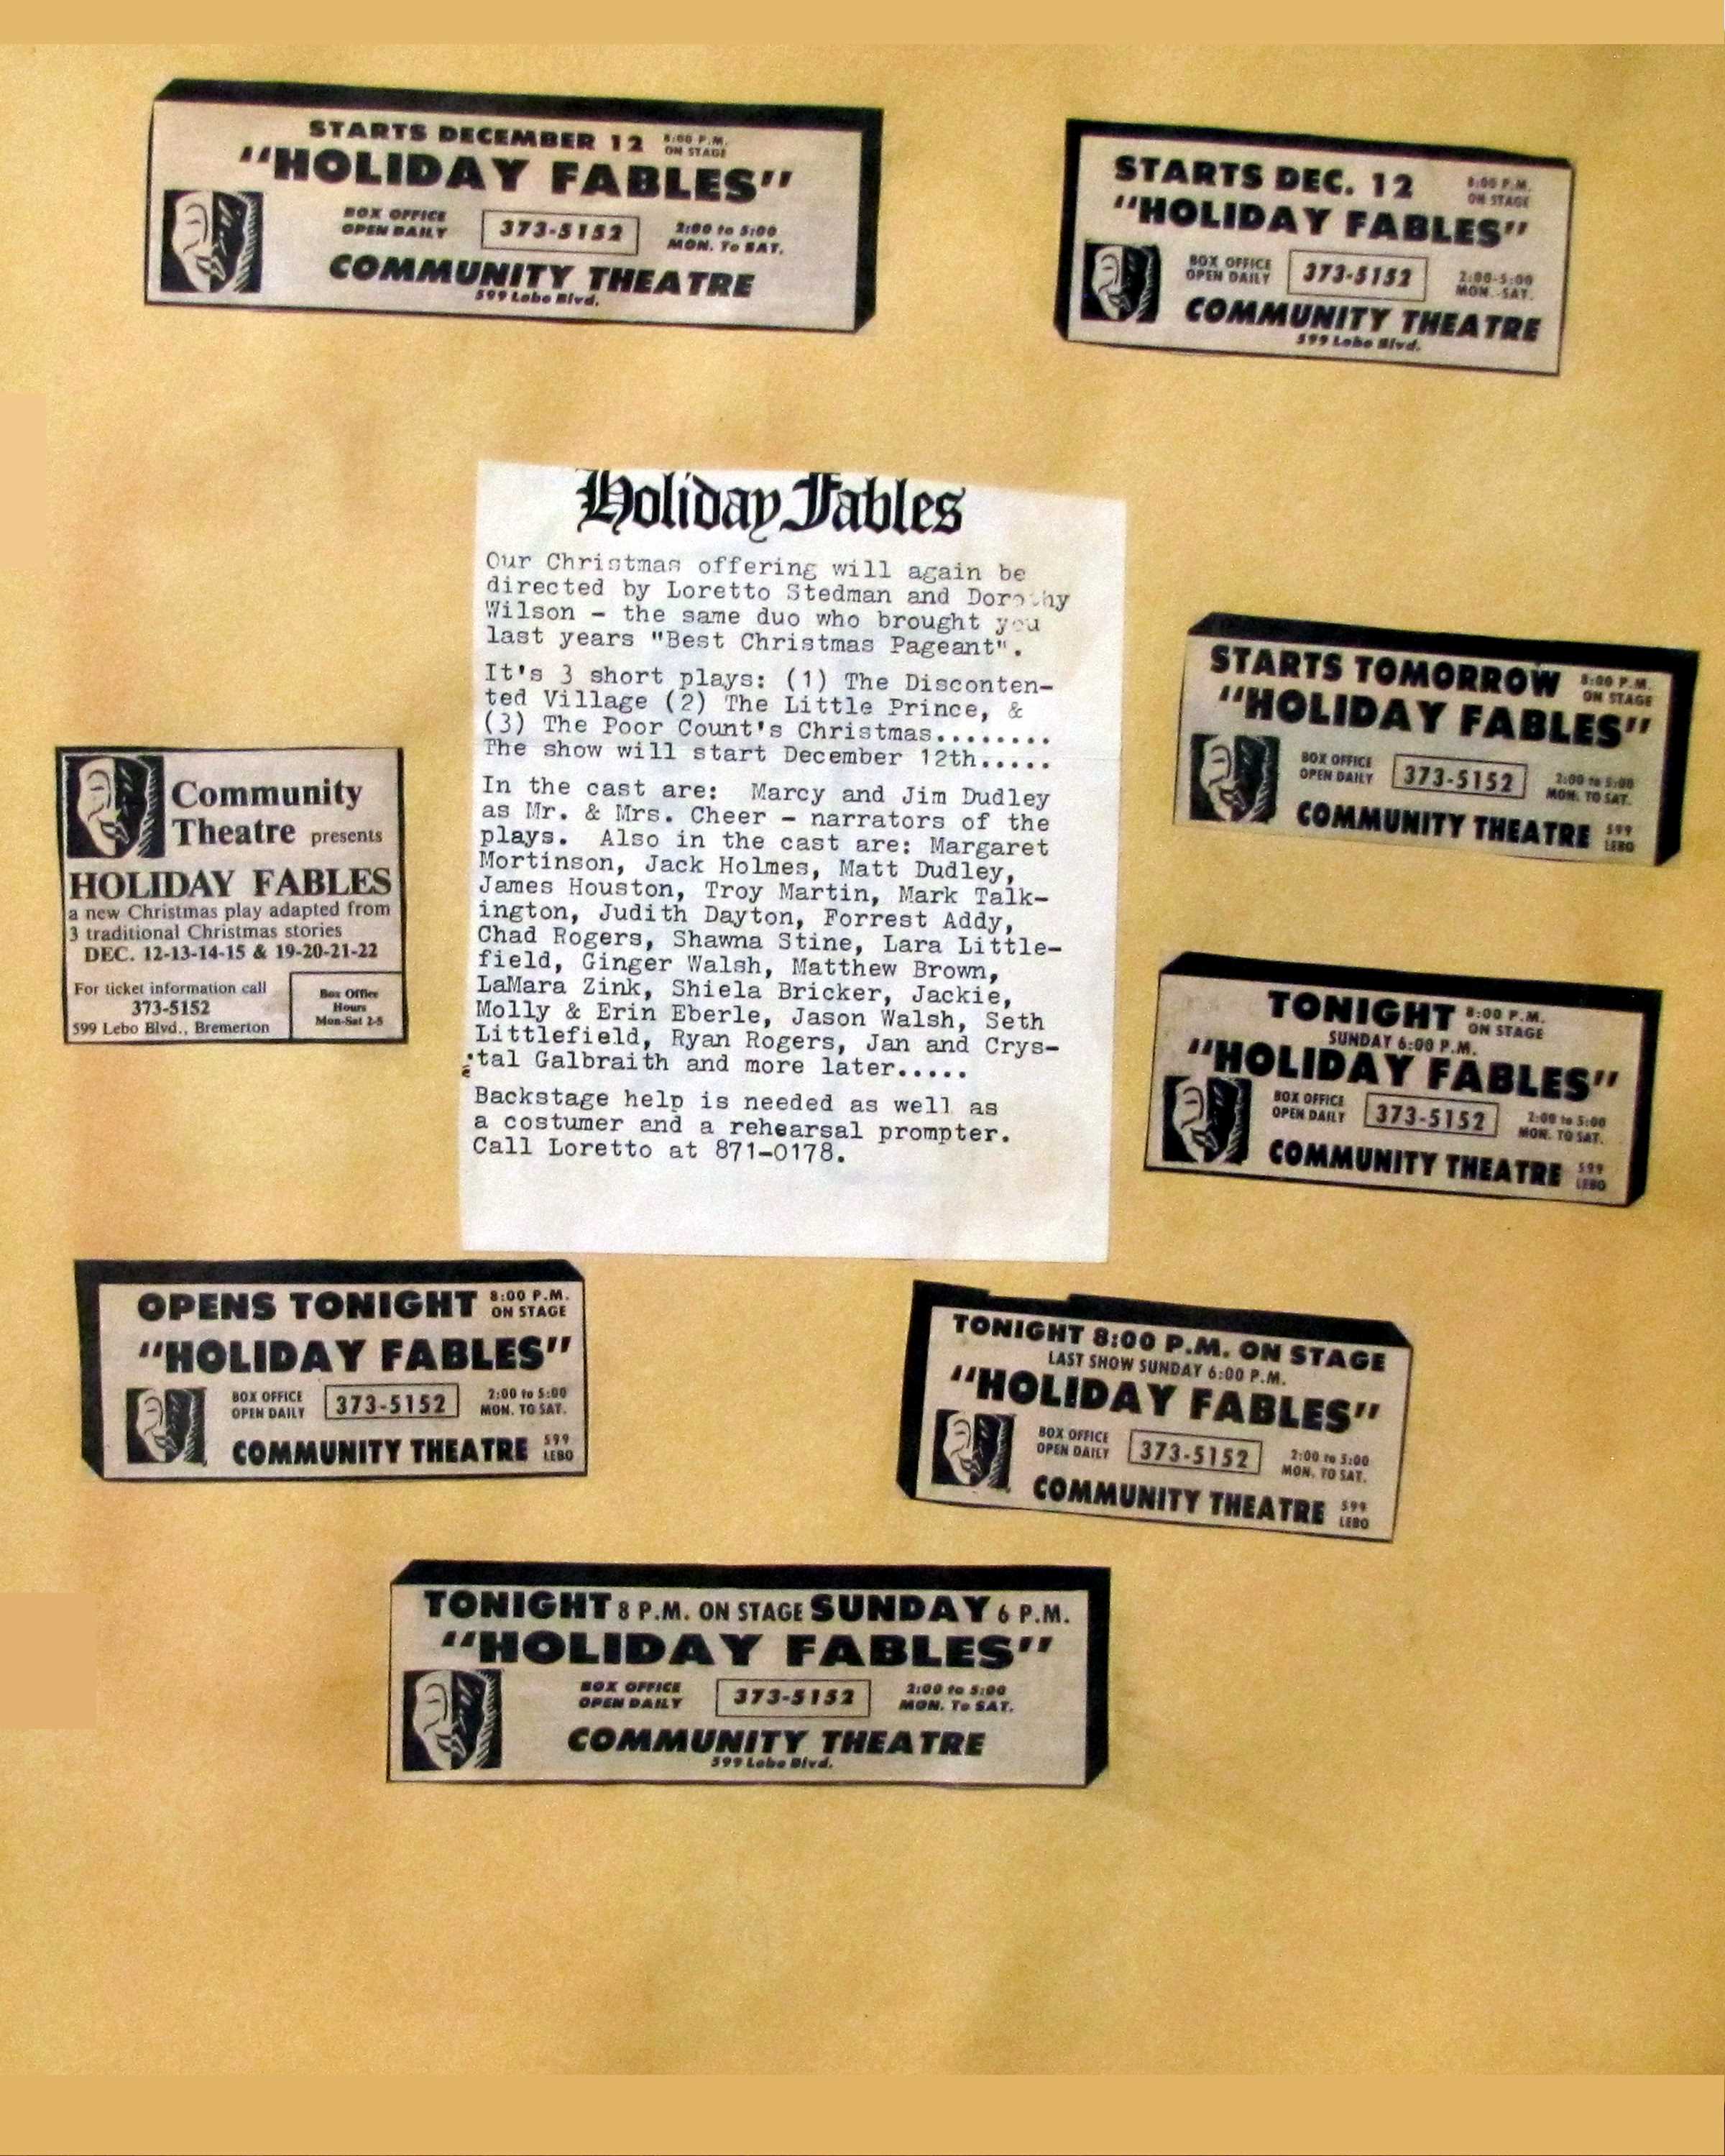 STARTS DECEMBER 12 8:00 P.M. ON STAGE
"HOLIDAY FABLES"
BOX OFFICE OPEN DAILY 373-5152 2:00 to 5:00 MON. To SAT.
COMMUNITY THEATRE
599 Lebo Blvd.
STARTS DEC. 12 8:00 P.M. ON STAGE
"HOLIDAY FABLES"
BOX OFFICE OPEN DAILY 373-5152 2:00-5:00 MON.-SAT.
COMMUNITY THEATRE
599 Lebo Blvd.
Holiday Fables
Our Christmas offering will again be
directed by Loretto Stedman and Dorothy
Wilson - the same duo who brought you
last years "Best Christmas Pageant".
It's 3 short plays: (1) The Disconten-
ted Village (2) The Little Prince, &
(3) The Poor Count's Christmas........
The show will start December 12th.....
In the cast are: Marcy and Jim Dudley
as Mr. & Mrs. Cheer - narrators of the
plays. Also in the cast are: Margaret
Mortinson, Jack Holmes, Matt Dudley,
James Houston, Troy Martin, Mark Talk-
ington, Judith Dayton, Forrest Addy,
Chad Rogers, Shawna Stine, Lara Little-
field, Ginger Walsh, Matthew Brown,
LaMara Zink, Shiela Bricker, Jackie,
Molly & Erin Eberle, Jason Walsh, Seth
Littlefield, Ryan Rogers, Jan and Crys-
tal Galbraith and more later.....
Backstage help is needed as well as
a costumer and a rehearsal prompter.
Call Loretto at 871-0178.
Community
Theatre presents
HOLIDAY FABLES
a new Christmas play adapted from
3 traditional Christmas stories
DEC. 12-13-14-15 & 19-20-21-22
For ticket information call
373-5152
599 Lebo Blvd., Bremerton
Box Office
Hours
Mon-Sat 2-5
STARTS TOMORROW 8:00 P.M. ON STAGE
"HOLIDAY FABLES"
BOX OFFICE OPEN DAILY 373-5152 2:00 to 5:00 MON. TO SAT.
COMMUNITY THEATRE 599 LEBO
TONIGHT 8:00 P.M. ON STAGE
SUNDAY 6:00 P.M.
"HOLIDAY FABLES"
BOX OFFICE OPEN DAILY 373-5152 2:00 to 5:00 MON. TO SAT.
COMMUNITY THEATRE 599 LEBO
OPENS TONIGHT 8:00 P.M. ON STAGE
"HOLIDAY FABLES"
BOX OFFICE OPEN DAILY 373-5152 2:00 to 5:00 MON. TO SAT.
COMMUNITY THEATRE 599 LEBO
TONIGHT 8:00 P.M. ON STAGE
LAST SHOW SUNDAY 6:00 P.M.
"HOLIDAY FABLES"
BOX OFFICE OPEN DAILY 373-5152 2:00 to 5:00 MON. TO SAT.
COMMUNITY THEATRE 599 LEBO
TONIGHT 8 P.M. ON STAGE SUNDAY 6 P.M.
"HOLIDAY FABLES"
BOX OFFICE OPEN DAILY 373-5152 2:00 to 5:00 MON. To SAT.
COMMUNITY THEATRE
599 Lebo Blvd.